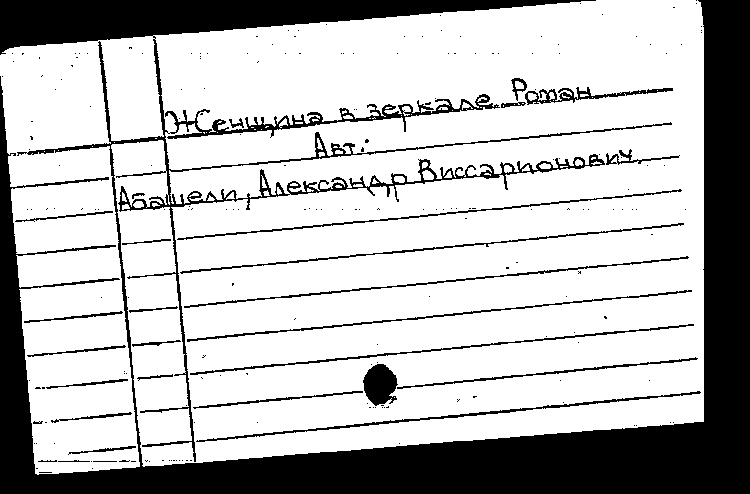 Женщина в зеркале Роман
Авт.:
Абашели, Александр Виссарионович.